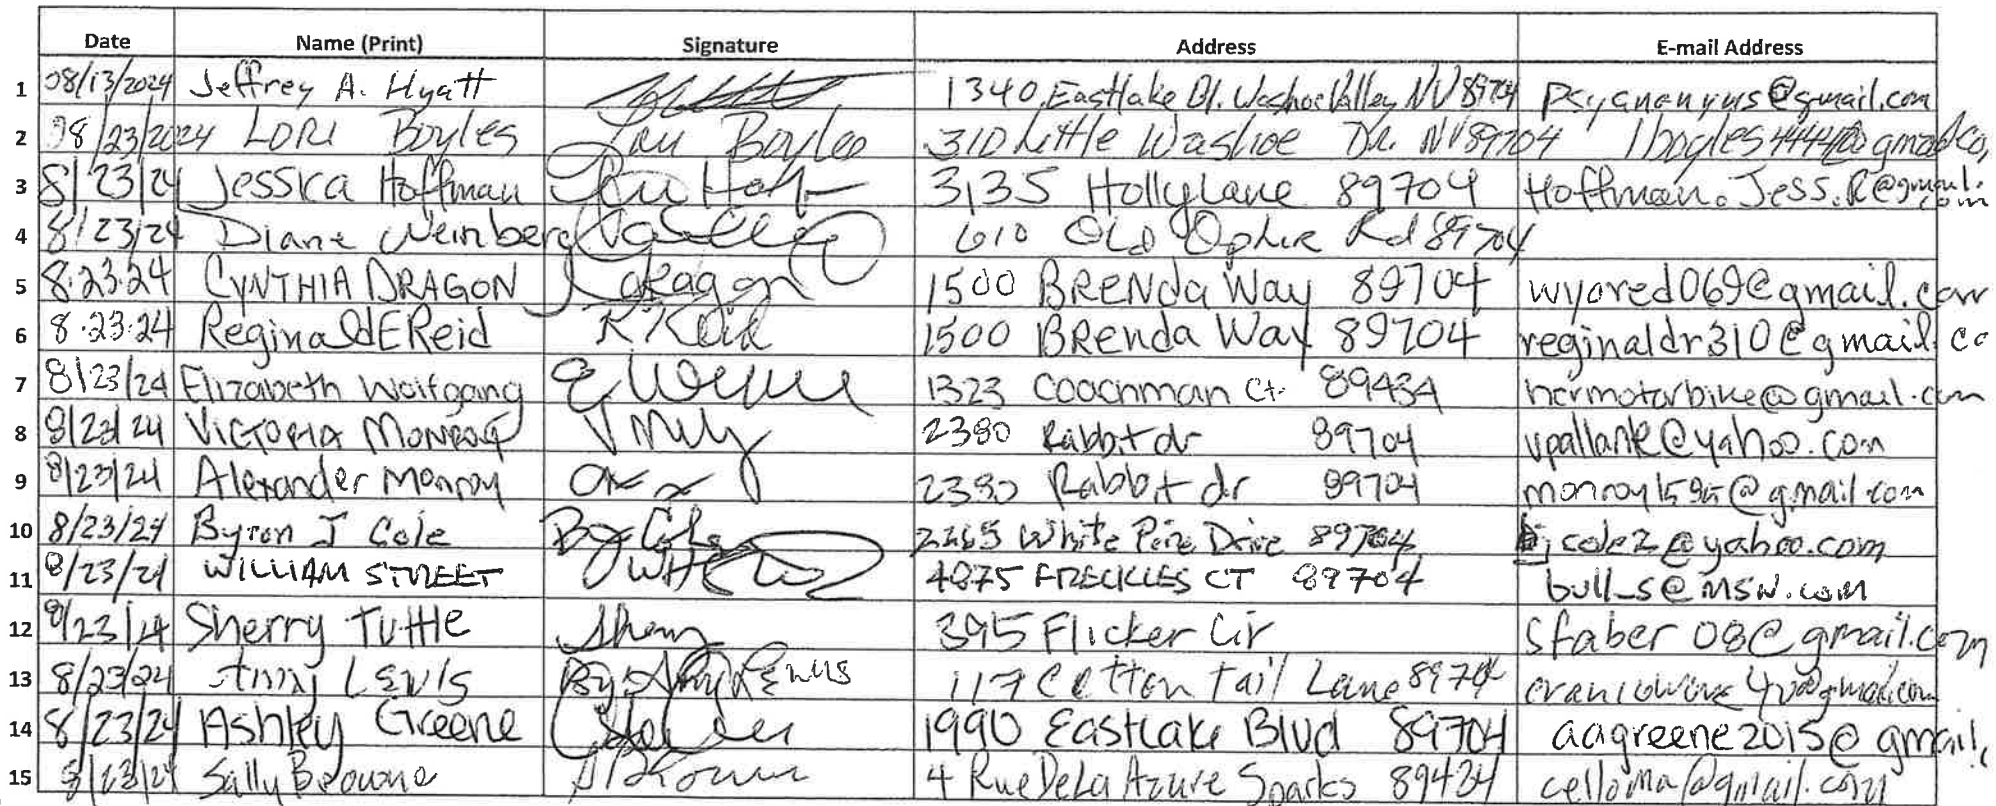 Date Name (Print) Signature Address E-mail Address
1 08/13/2024 Jeffrey A. Hyatt 1340 Eastlake Bl. Washoe Valley NV 89704 @gmail.com
2 08/23/2024 LORI Boyles Lori Boyles 310 Little Washoe Dr. NV 89704
3 8/23/24 Jessica Hoffman 3135 Holly Lane 89704 Hoffman.Jess.R@gmail.com
4 8/23/24 Diane Weinberg 610 OLD Ophir Rd 89704
5 8.23.24 CYNTHIA DRAGON 1500 BRENda Way 89704 wyored069@gmail.com
6 8.23.24 Reginald E Reid 1500 BRenda Way 89704 reginaldr310@gmail.co
7 8/23/24 Elizabeth Wolfgang 1323 Coachman Ct. 89434 hermotorbike@gmail.com
8 8/23/24 VICTORIA MONROY 2380 Rabbit dr 89704 vpallank@yahoo.com
9 8/23/24 Alexander Monroy 2380 Rabbit dr 89704 @gmail.com
10 8/23/24 Byron J Cole White Pine Drive 89704 jcole2@yahoo.com
11 8/23/24 WILLIAM STREET 4875 FRECKLES CT 89704 bull_s@msn.com
12 8/23/24 Sherry Tuttle Sherry 395 Flicker Cir sfaber08@gmail.com
13 8/23/24 Amy Lewis 117 Cotton tail Lane 89704
14 8/23/24 Ashley Greene 1990 Eastlake Blvd 89704 aagreene2015@gmail.
15 8/23/24 Sally Browne 4 Rue De La Azure Sparks 89434